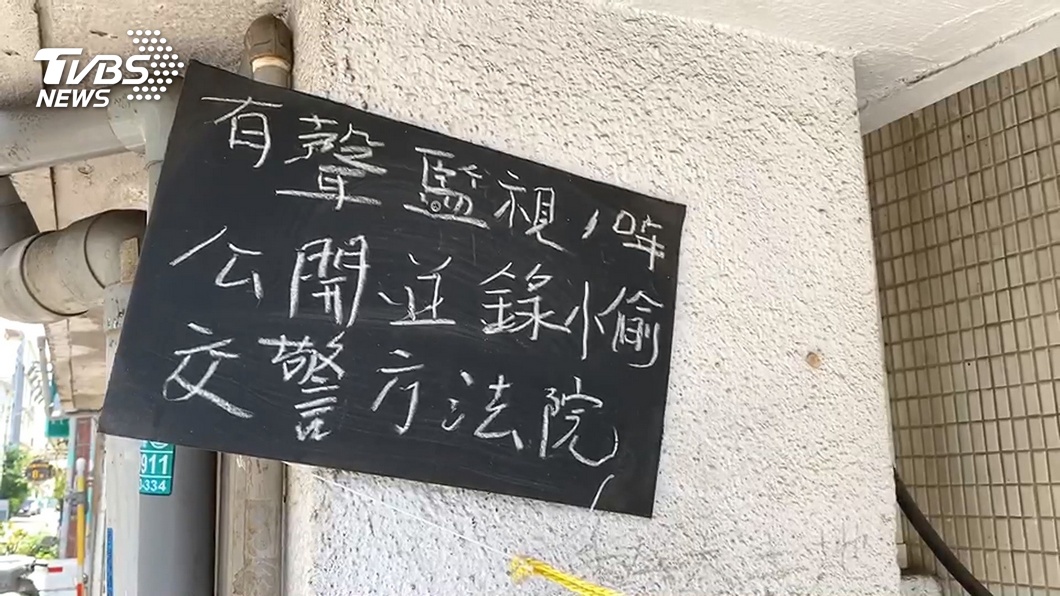 TVBS
NEWS
有聲監視,
公開並錄小偷
交警方法院,
911
-334